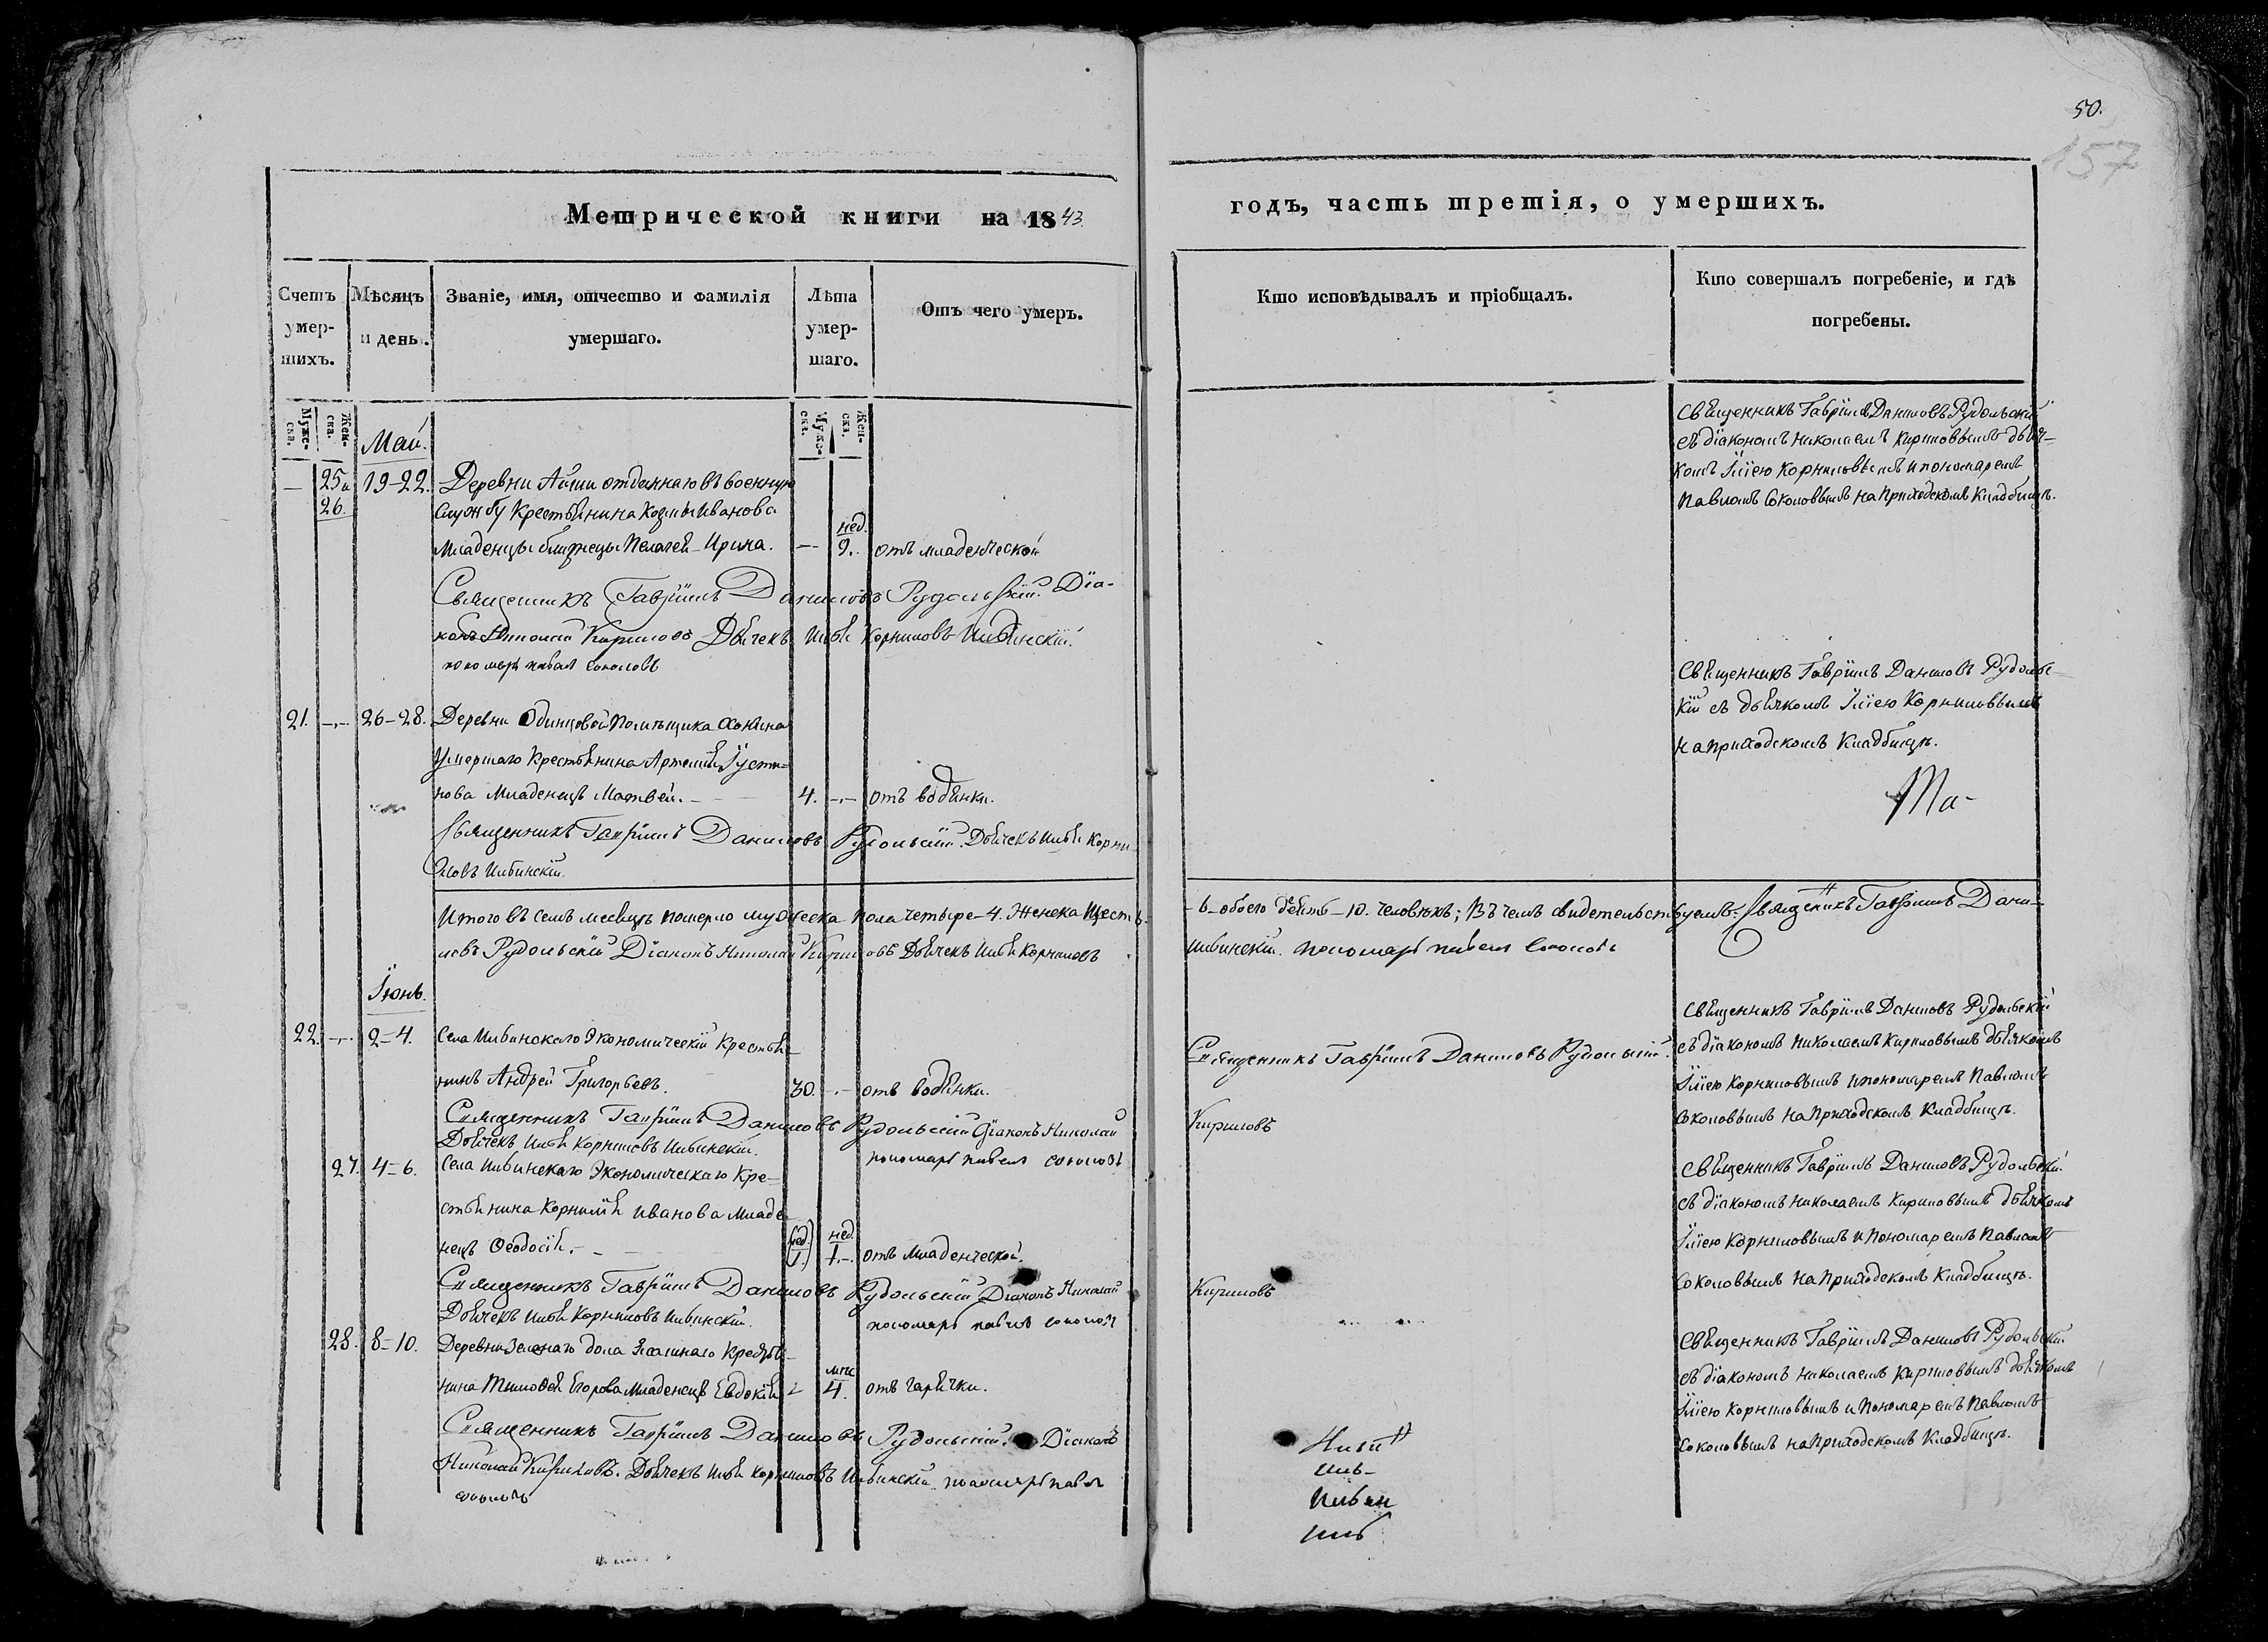 50.
157
Метрической книги на 1843
годъ, часть третія, о умершихъ.
Счетъ умер-
шихъ.
Мѣсяцъ
и день.
Званіе, имя, отчество и фамилія
умершаго.
Лѣта
умер-
шаго.
Отъ чего умеръ.
Кто исповѣдывалъ и пріобщалъ.
Кто совершалъ погребеніе, и гдѣ
погребены.
Муже-
ска.
Жен-
ска.
Муже-
ска.
Жен-
ска.
Май.
— 25 и 26. 19-22. Деревни отданнаго въ военную
службу Крестьянина Козмы Иванова
Младенцы близнецы Пелагея - Ирина. — нед. 9. отъ младенческой
Священникъ Гавріилъ Даниловъ Рудольскій съ діакономъ Николаемъ Кириловымъ дьяч-
комъ Ильею Корниловымъ и пономаремъ
Павломъ Соколовымъ на приходскомъ кладбищѣ.
Священникъ Гавріилъ Даниловъ Рудольскій. Діа-
конъ Николай Кириловъ Дьячекъ Илья Корниловъ Ильинскій.
пономарь павелъ соколовъ
21. -,- 26-28. Деревни Одинцовой Помѣщика
Умершаго Крестьянина Артемія Густи-
нова Младенецъ Матвей. - 4. -.- отъ водянки.
Священникъ Гавріилъ Даниловъ Рудольс-
кій съ дьячкомъ Ильею Корниловымъ
на приходскомъ кладбищѣ.
Ма-
Священникъ Гавріилъ Даниловъ Рудольскій. Дьячекъ Илья Корни-
ловъ Ильинскій.
Итого въ семъ месяцѣ померло мужеска пола четыре-4. Женска шесть
-6-обоего десять-10. человѣкъ; Въ чемъ свидетельствуемъ: Священникъ Гавріилъ Дани-
ловъ Рудольскій Діаконъ Николай Кириловъ Дьячекъ Илья Корниловъ
Ильинскій. пономарь павелъ соколовъ
Іюнь.
22. -,- 2=4. Села Ильинскаго Экономическій Крестья-
нинъ Андрей Григорьевъ. 30. -.- отъ водянки.
Священникъ Гавріилъ Даниловъ Рудольскій.
Священникъ Гавріилъ Даниловъ Рудольскій
съ діакономъ Николаемъ Кириловымъ дьячкомъ
Ильею Корниловымъ и пономаремъ Павломъ
Соколовымъ на приходскомъ кладбищѣ.
Священникъ Гавріилъ Даниловъ Рудольскій Діаконъ Николай
Кириловъ
Дьячекъ Илья Корниловъ Ильинскій. пономарь павелъ соколовъ
27. 4=6. Села Ильинскаго Экономическаго Кре-
стьянина Корнилія Иванова Младе-
нецъ Феодосія. - (нед. 1.) нед. 1.-. отъ младенческой.
Священникъ Гавріилъ Даниловъ Рудольскій
съ діакономъ Николаемъ Кириловымъ дьячкомъ
Ильею Корниловымъ и Пономаремъ Павломъ
Соколовымъ на приходскомъ кладбищѣ.
Священникъ Гавріилъ Даниловъ Рудольскій Діаконъ Николай
Кириловъ
Дьячекъ Илья Корниловъ Ильинскій. пономарь павелъ соколовъ
28. 8=10. Деревни Зеленаго дола Крестья-
нина Тимофея Егорова Младенецъ Евдокія мѣс 4. отъ гарячки.
Священникъ Гавріилъ Даниловъ Рудольскій
съ діакономъ Николаемъ Кириловымъ дьячкомъ
Ильею Корниловымъ и Пономаремъ Павломъ
Соколовымъ на приходскомъ кладбищѣ.
Священникъ Гавріилъ Даниловъ Рудольскій. Діаконъ
Николай Кириловъ. Дьячекъ Илья Корниловъ Ильинскій. пономарь павелъ
соколовъ
Иль-
Ильин
Иль